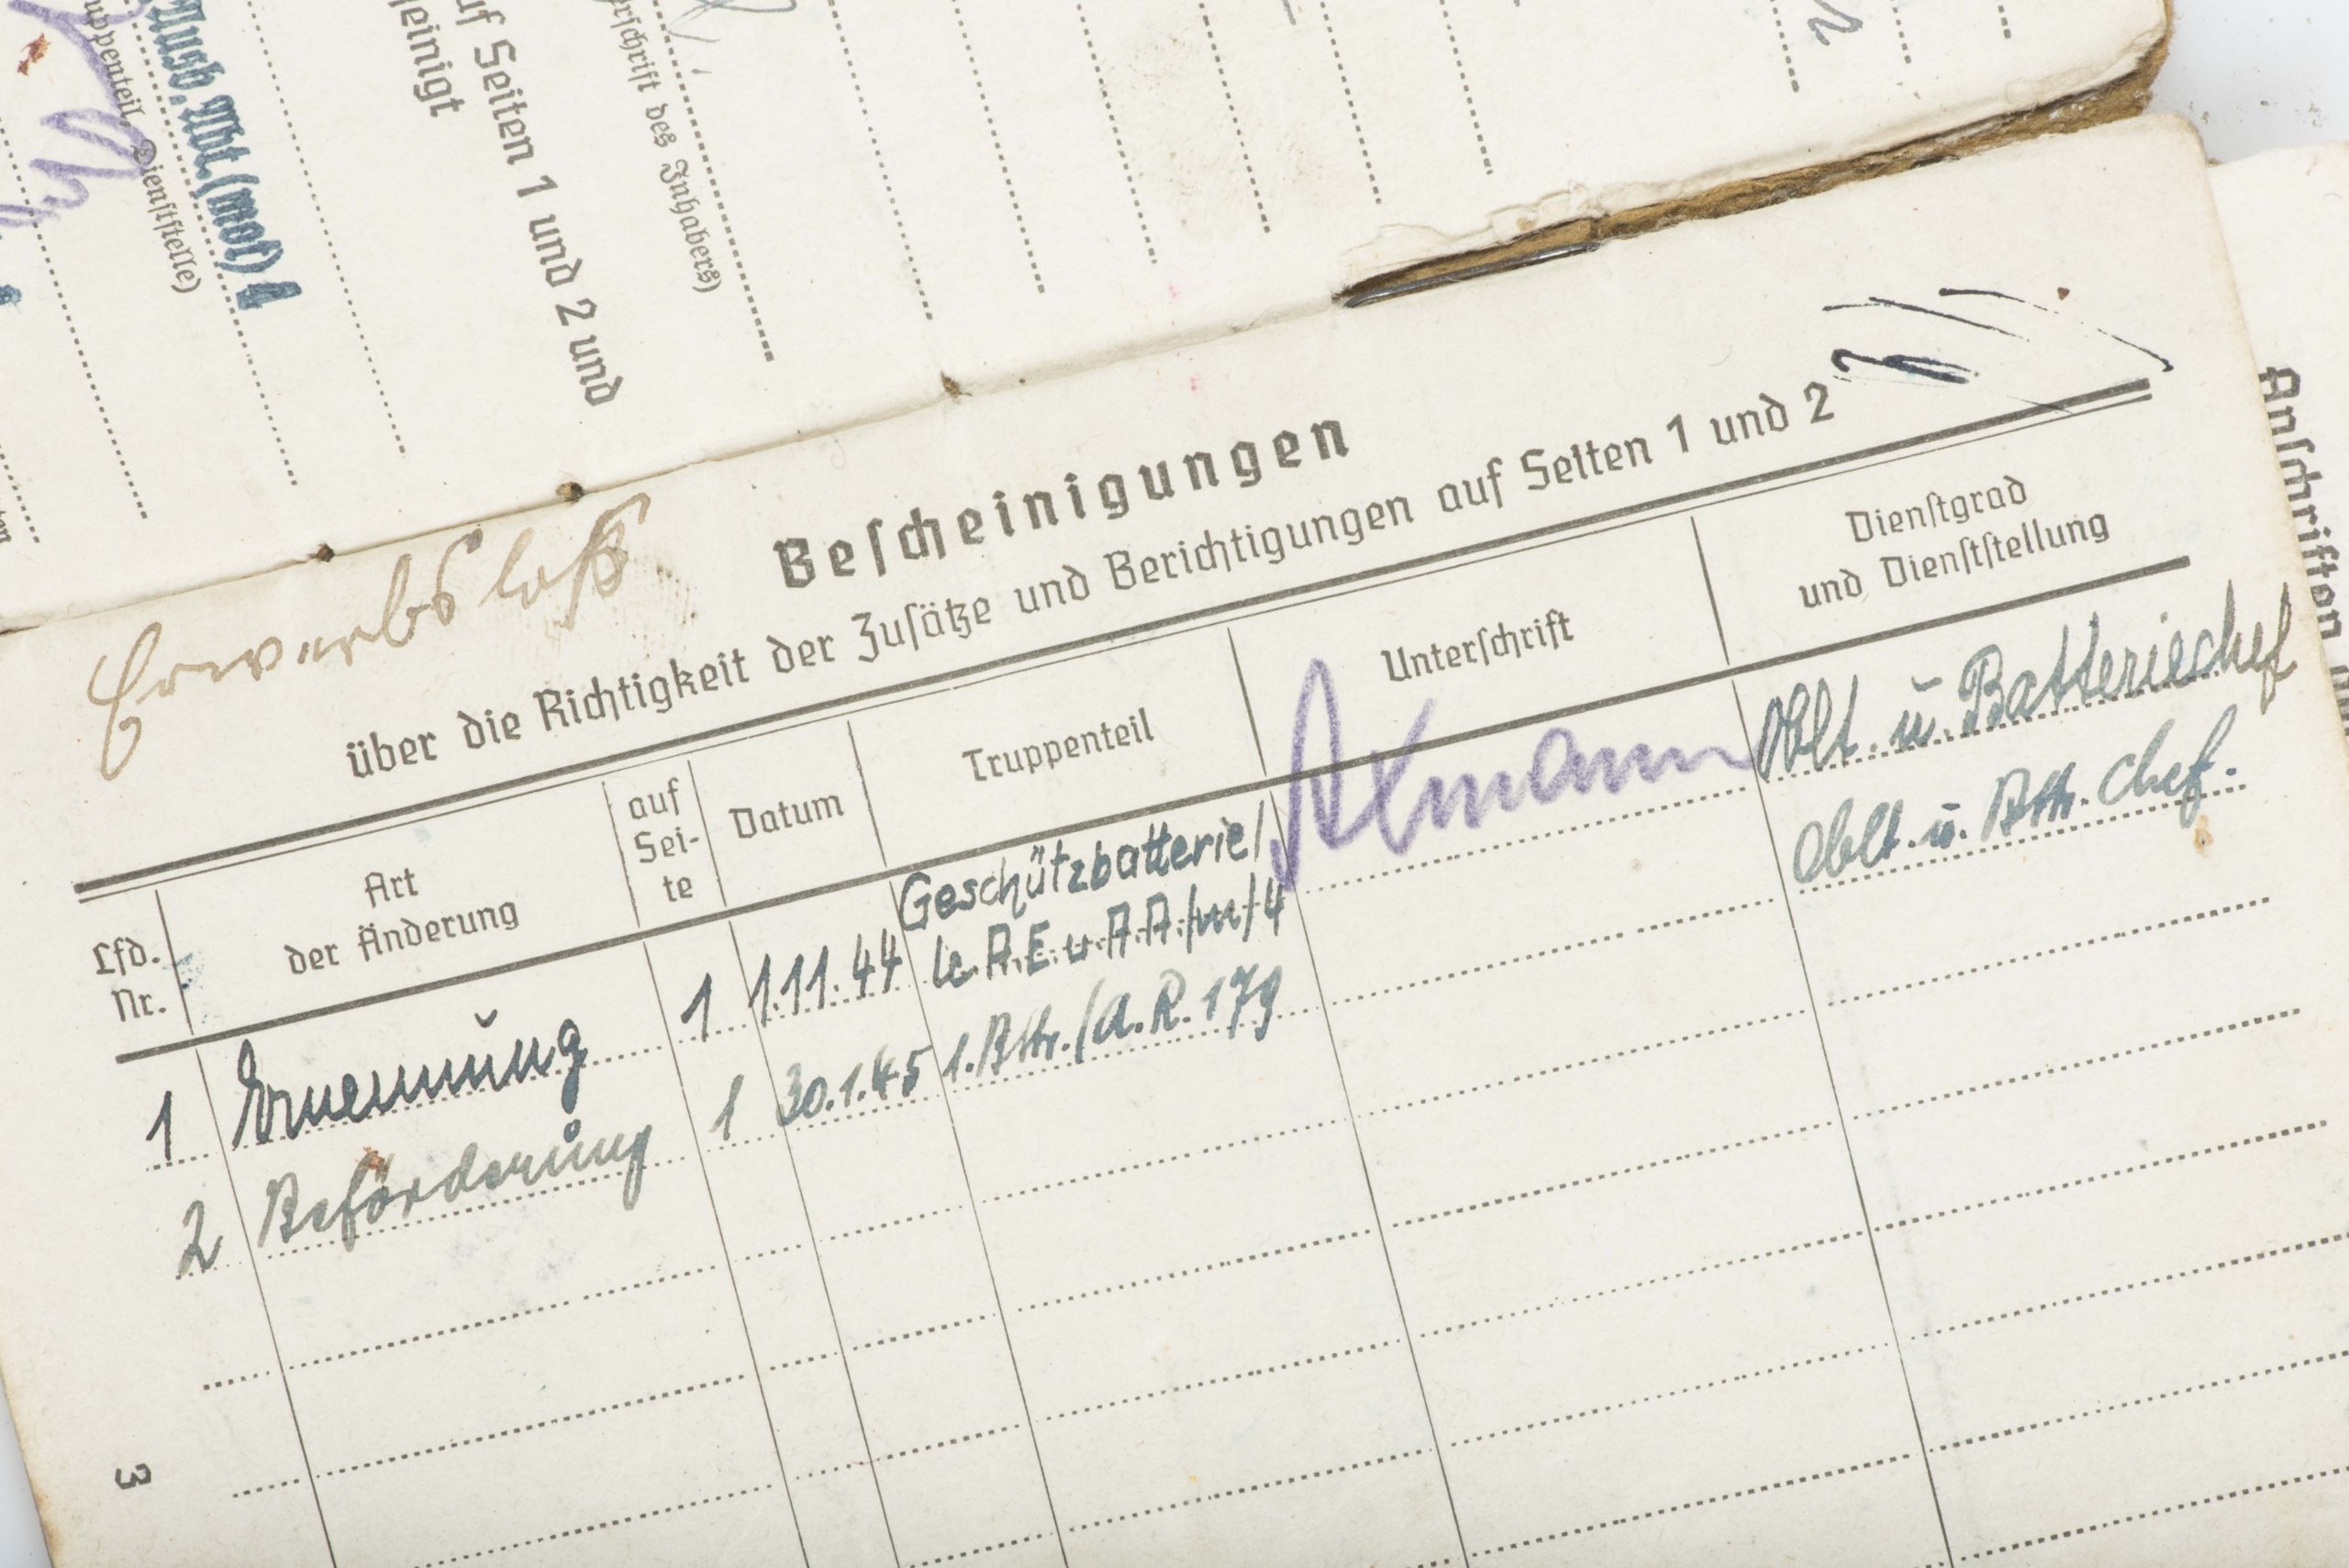 Ausb. Abt. (mot) 1
uppenteil, Dienststelle)
uf Seiten 1 und 2 und
einigt
rschrift des Inhabers)
Erwerbsloß
Bescheinigungen
über die Richtigkeit der Zusätze und Berichtigungen auf Seiten 1 und 2
Lfd. Nr. Art der Änderung auf Sei- te Datum Truppenteil Unterschrift Dienstgrad und Dienststellung
1 Ernennung 1 1.11.44 Geschützbatterie/ le. A. E. u. A. A. /m/ 4 Axmann Oblt. u. Batteriechef
2 Beförderung 1 30.1.45 1. Bttr. / A. R. 179 Oblt. u. Bttr. Chef.
3
Anschriften